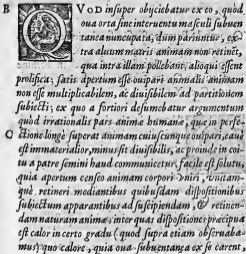 B QVOD insuper obyciebatur ex eo, quòd
oua ortasine interuentu masculi subuen
tanea nuncupata, dum pariuntur, ex
tra aluum matris animam non retinēt,
qua intra illam pollebant, alioqui essent
prolifica; satis apertum esse ouipari animalis animam
non esse multiplicabilem, ac diuisibilem ad partitionem
subiecti; ex quo a fortiori desumebatur argumentum
quòd irrationalis pars animæ humanæ, quæ in perfe-
O ctione longè superat animam cuiuscumque ouipari, eaue
est immaterialis, minus sit diuisibilis, ac proinde in coi-
tu a patre semini haud communicetur, facile est solutu,
quia apertum censeo animam corpori vniri, vnitam-
què retineri mediantibus quibusdam dispositionibus
subiectum apparantibus ad suscipiendam, & retinen-
dam naturam animæ, inter quas dispositiones præcipua
est calor in certo gradu (quod supra etiam obseruaba-
mus) quo calore, quia oua subuentanea ex se carent,